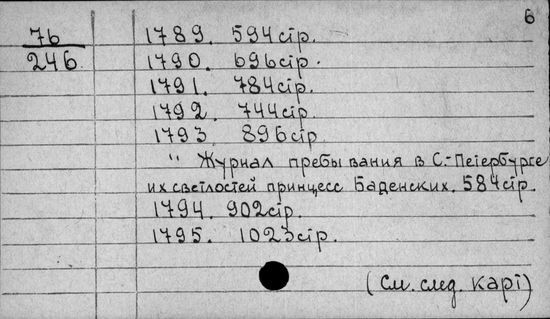 6
76
246
1789. 594стр.
1790. 696стр.
1791. 784стр.
1792. 744стр.
1793 896стр
" Журнал пребывания в С.-Петербурге
их светлостей принцесс Баденских. 584стр.
1794. 902стр.
1795. 1023стр.
(См. след. карт)